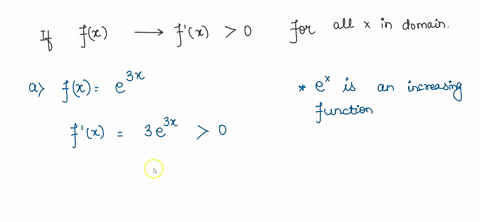 If f(x) → f'(x) > 0 for all x in domain.
a) f(x) = e^{3x} * e^x is an increasing
function
f'(x) = 3e^{3x} > 0